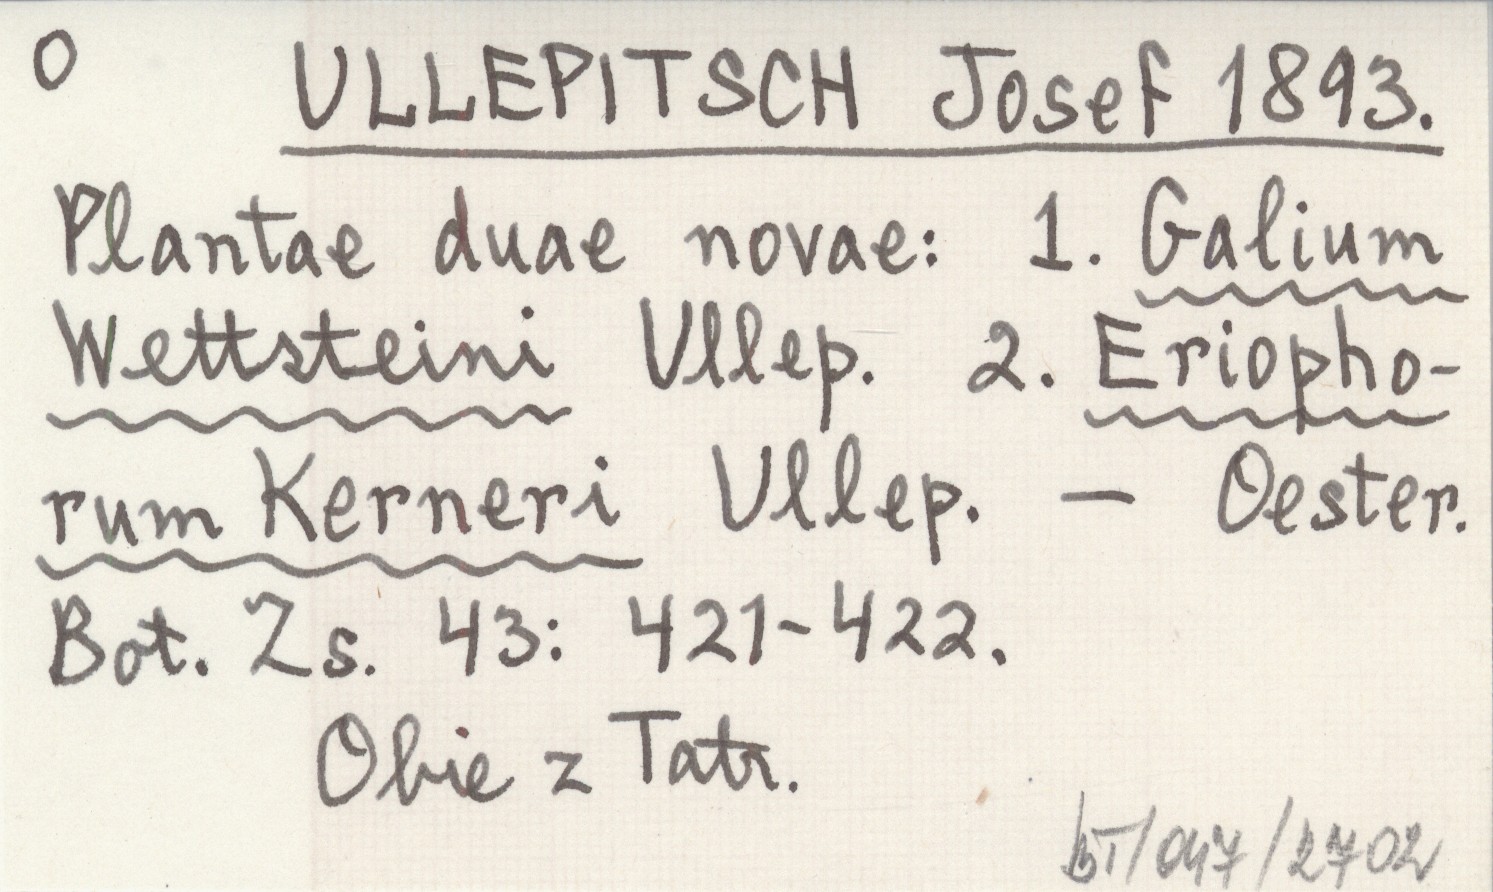 O ULLEPITSCH Josef 1893.
Plantae duae novae: 1. Galium
Wettsteini Ullep. 2. Eriopho-
rum Kerneri Ullep. — Oester.
Bot. Zs. 43: 421-422.
Obie z Tatr.
bT/047/2702